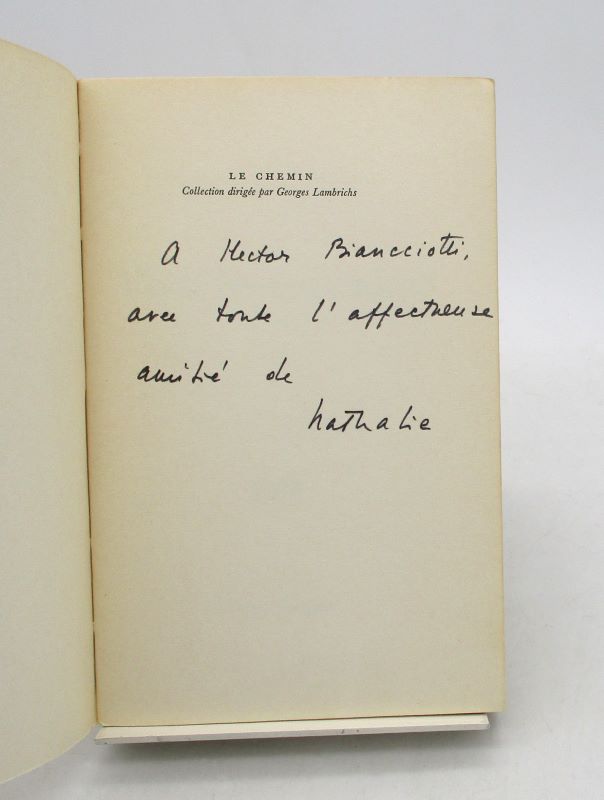 LE CHEMIN
Collection dirigée par Georges Lambrichs
A Hector Biancciotti,
avec toute l'affectueuse
amitié de
Nathalie